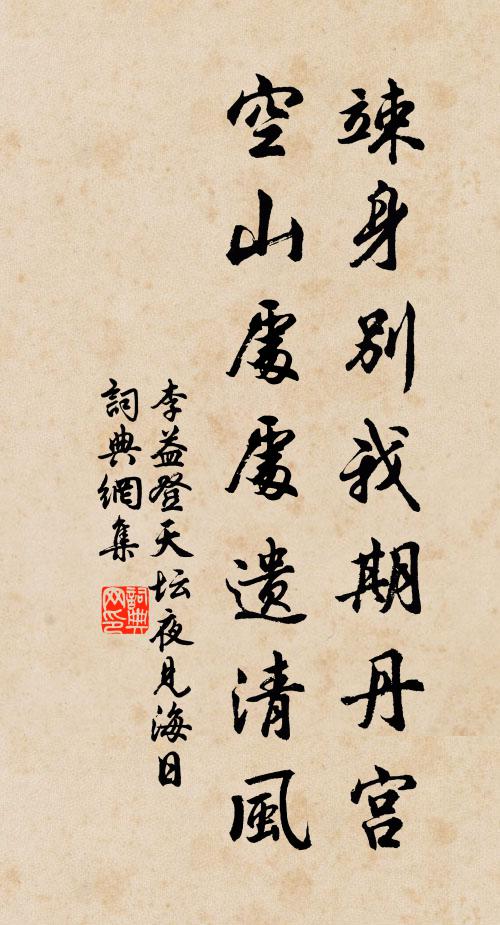 竦身别我期丹宫
空山處處遗清風
李益登天坛夜見海日
詞典網集
詞典网印